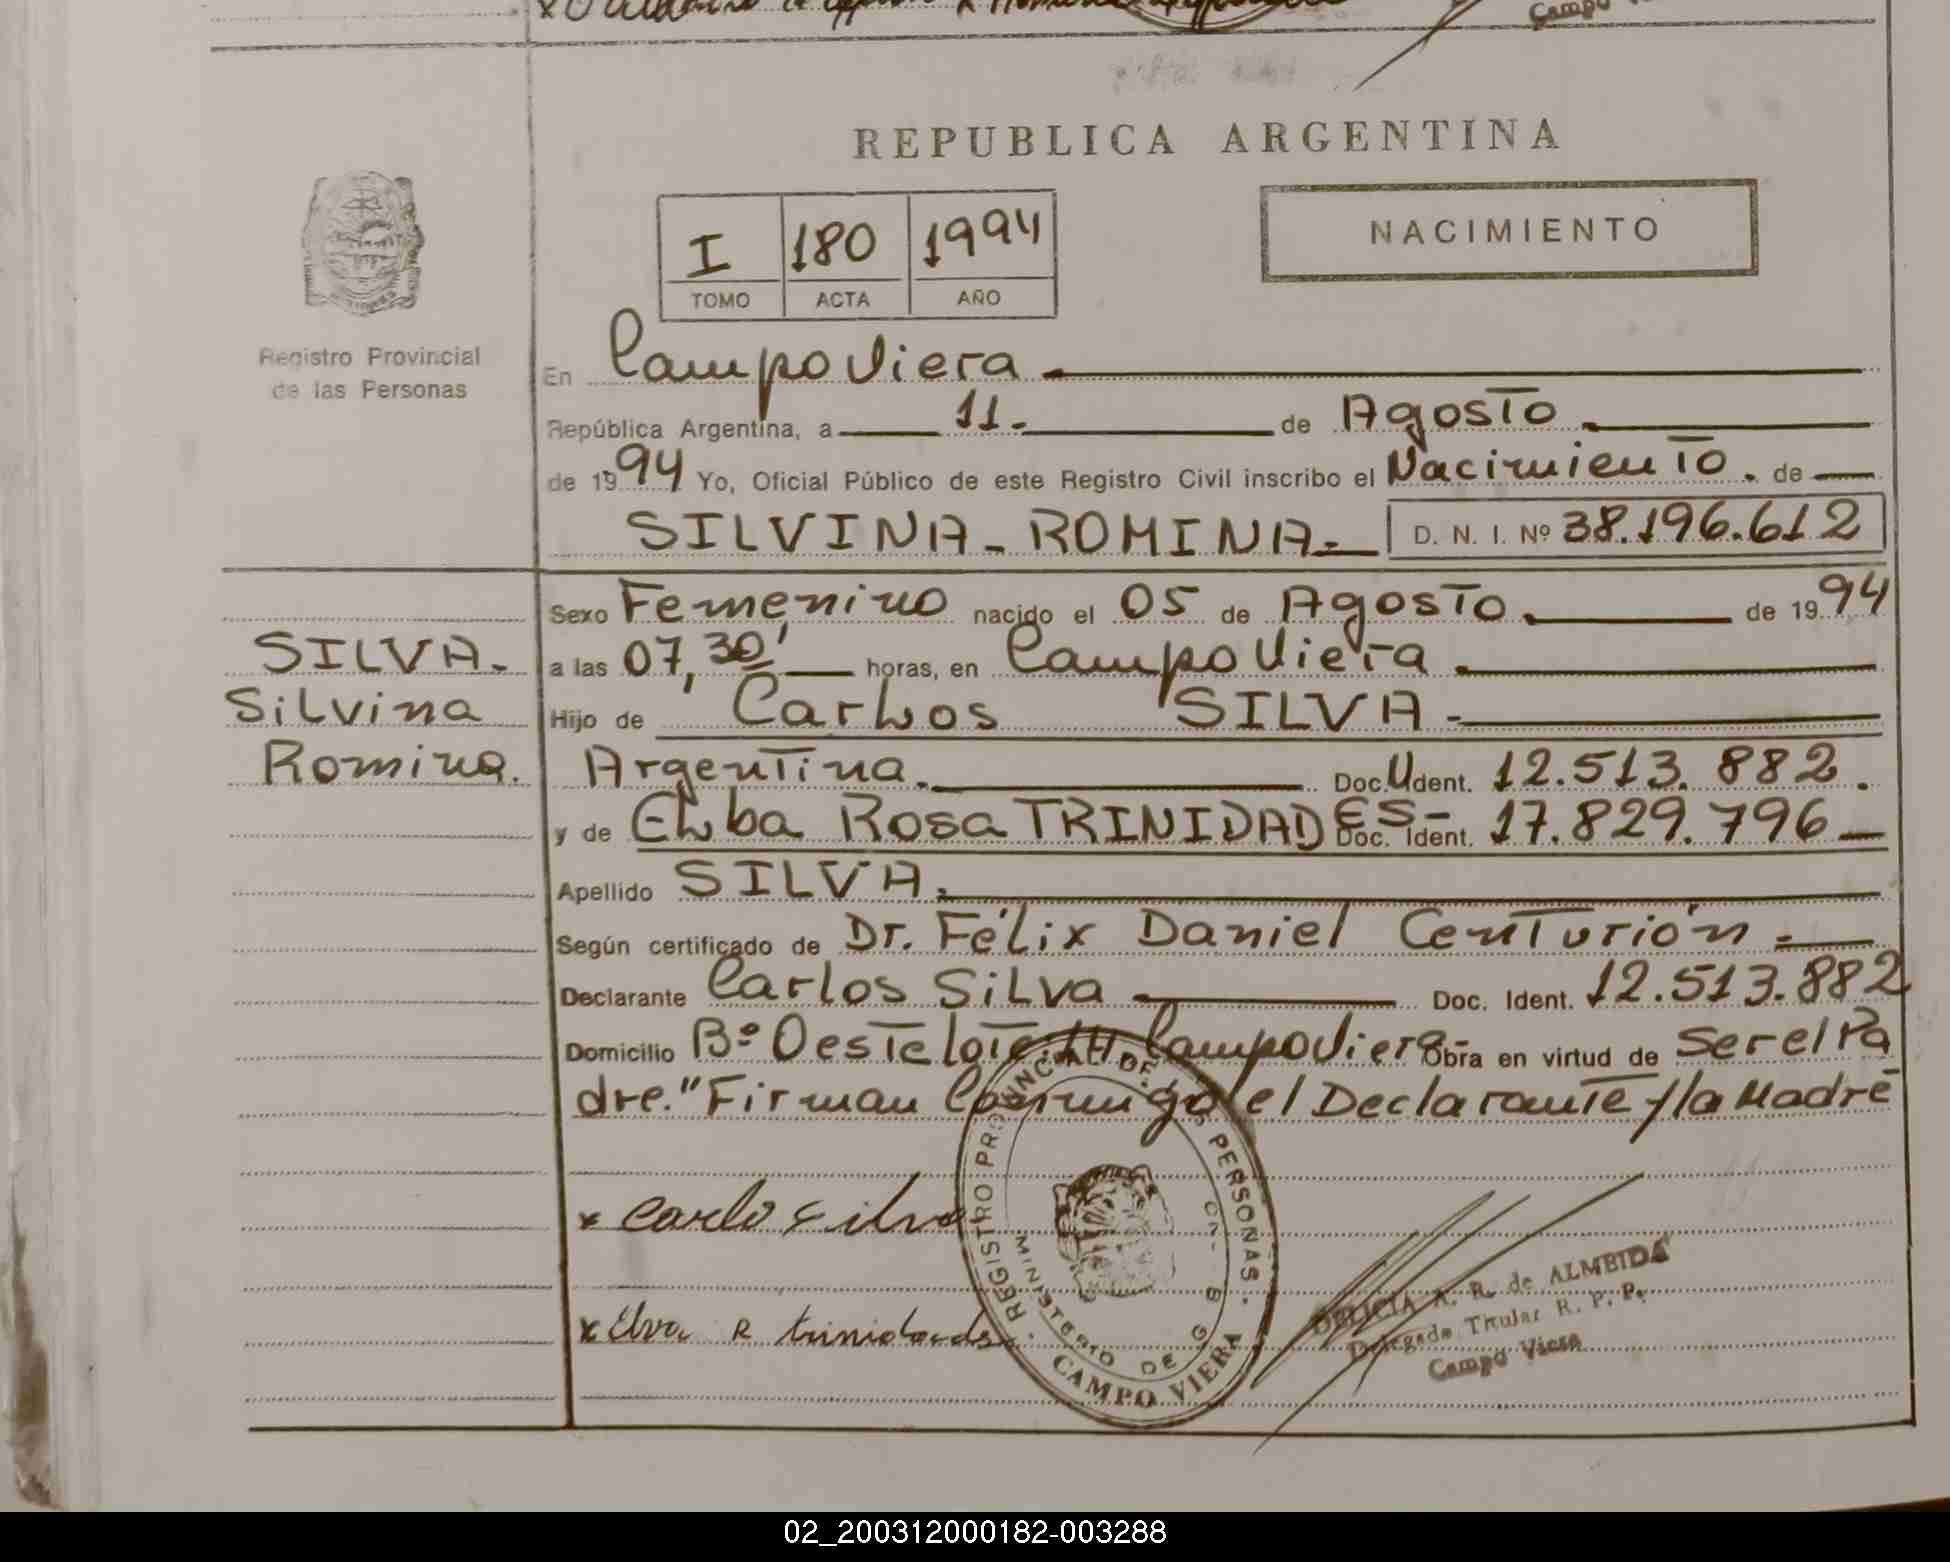 Campo
REPUBLICA ARGENTINA
I 180 1994
TOMO ACTA AÑO
NACIMIENTO
Registro Provincial
de las Personas
En Campo Viera
República Argentina, a 11. de Agosto
de 1994 Yo, Oficial Público de este Registro Civil inscribo el Nacimiento. de
SILVINA - ROMINA - D. N. I. Nº 38.196.612
Sexo Femenino nacido el 05 de Agosto. de 1994
SILVA.
Silvina
Romina.
a las 07,30' horas, en Campo Viera
Hijo de Carlos SILVA -
Argentina. Doc. U Ident. 12.513.882.
y de Elba Rosa TRINIDADES - Doc. Ident. 17.829.796
Apellido SILVA.
Según certificado de Dr. Félix Daniel Centurión -
Declarante Carlos Silva Doc. Ident. 12.513.882
Domicilio Bº Oeste lote Campo Viera - Obra en virtud de Ser el Pa
dre." Firman Conmigo el Declarante y la Madre
x Carlos Silva
x Elva R trinidades
REGISTRO PROVINCIAL DE PERSONAS.
MINISTERIO DE G
CAMPO VIERA
DELICIA A. R. de ALMEIDA
Delegada Titular R. P. P.
Campo Viera
02_200312000182-003288